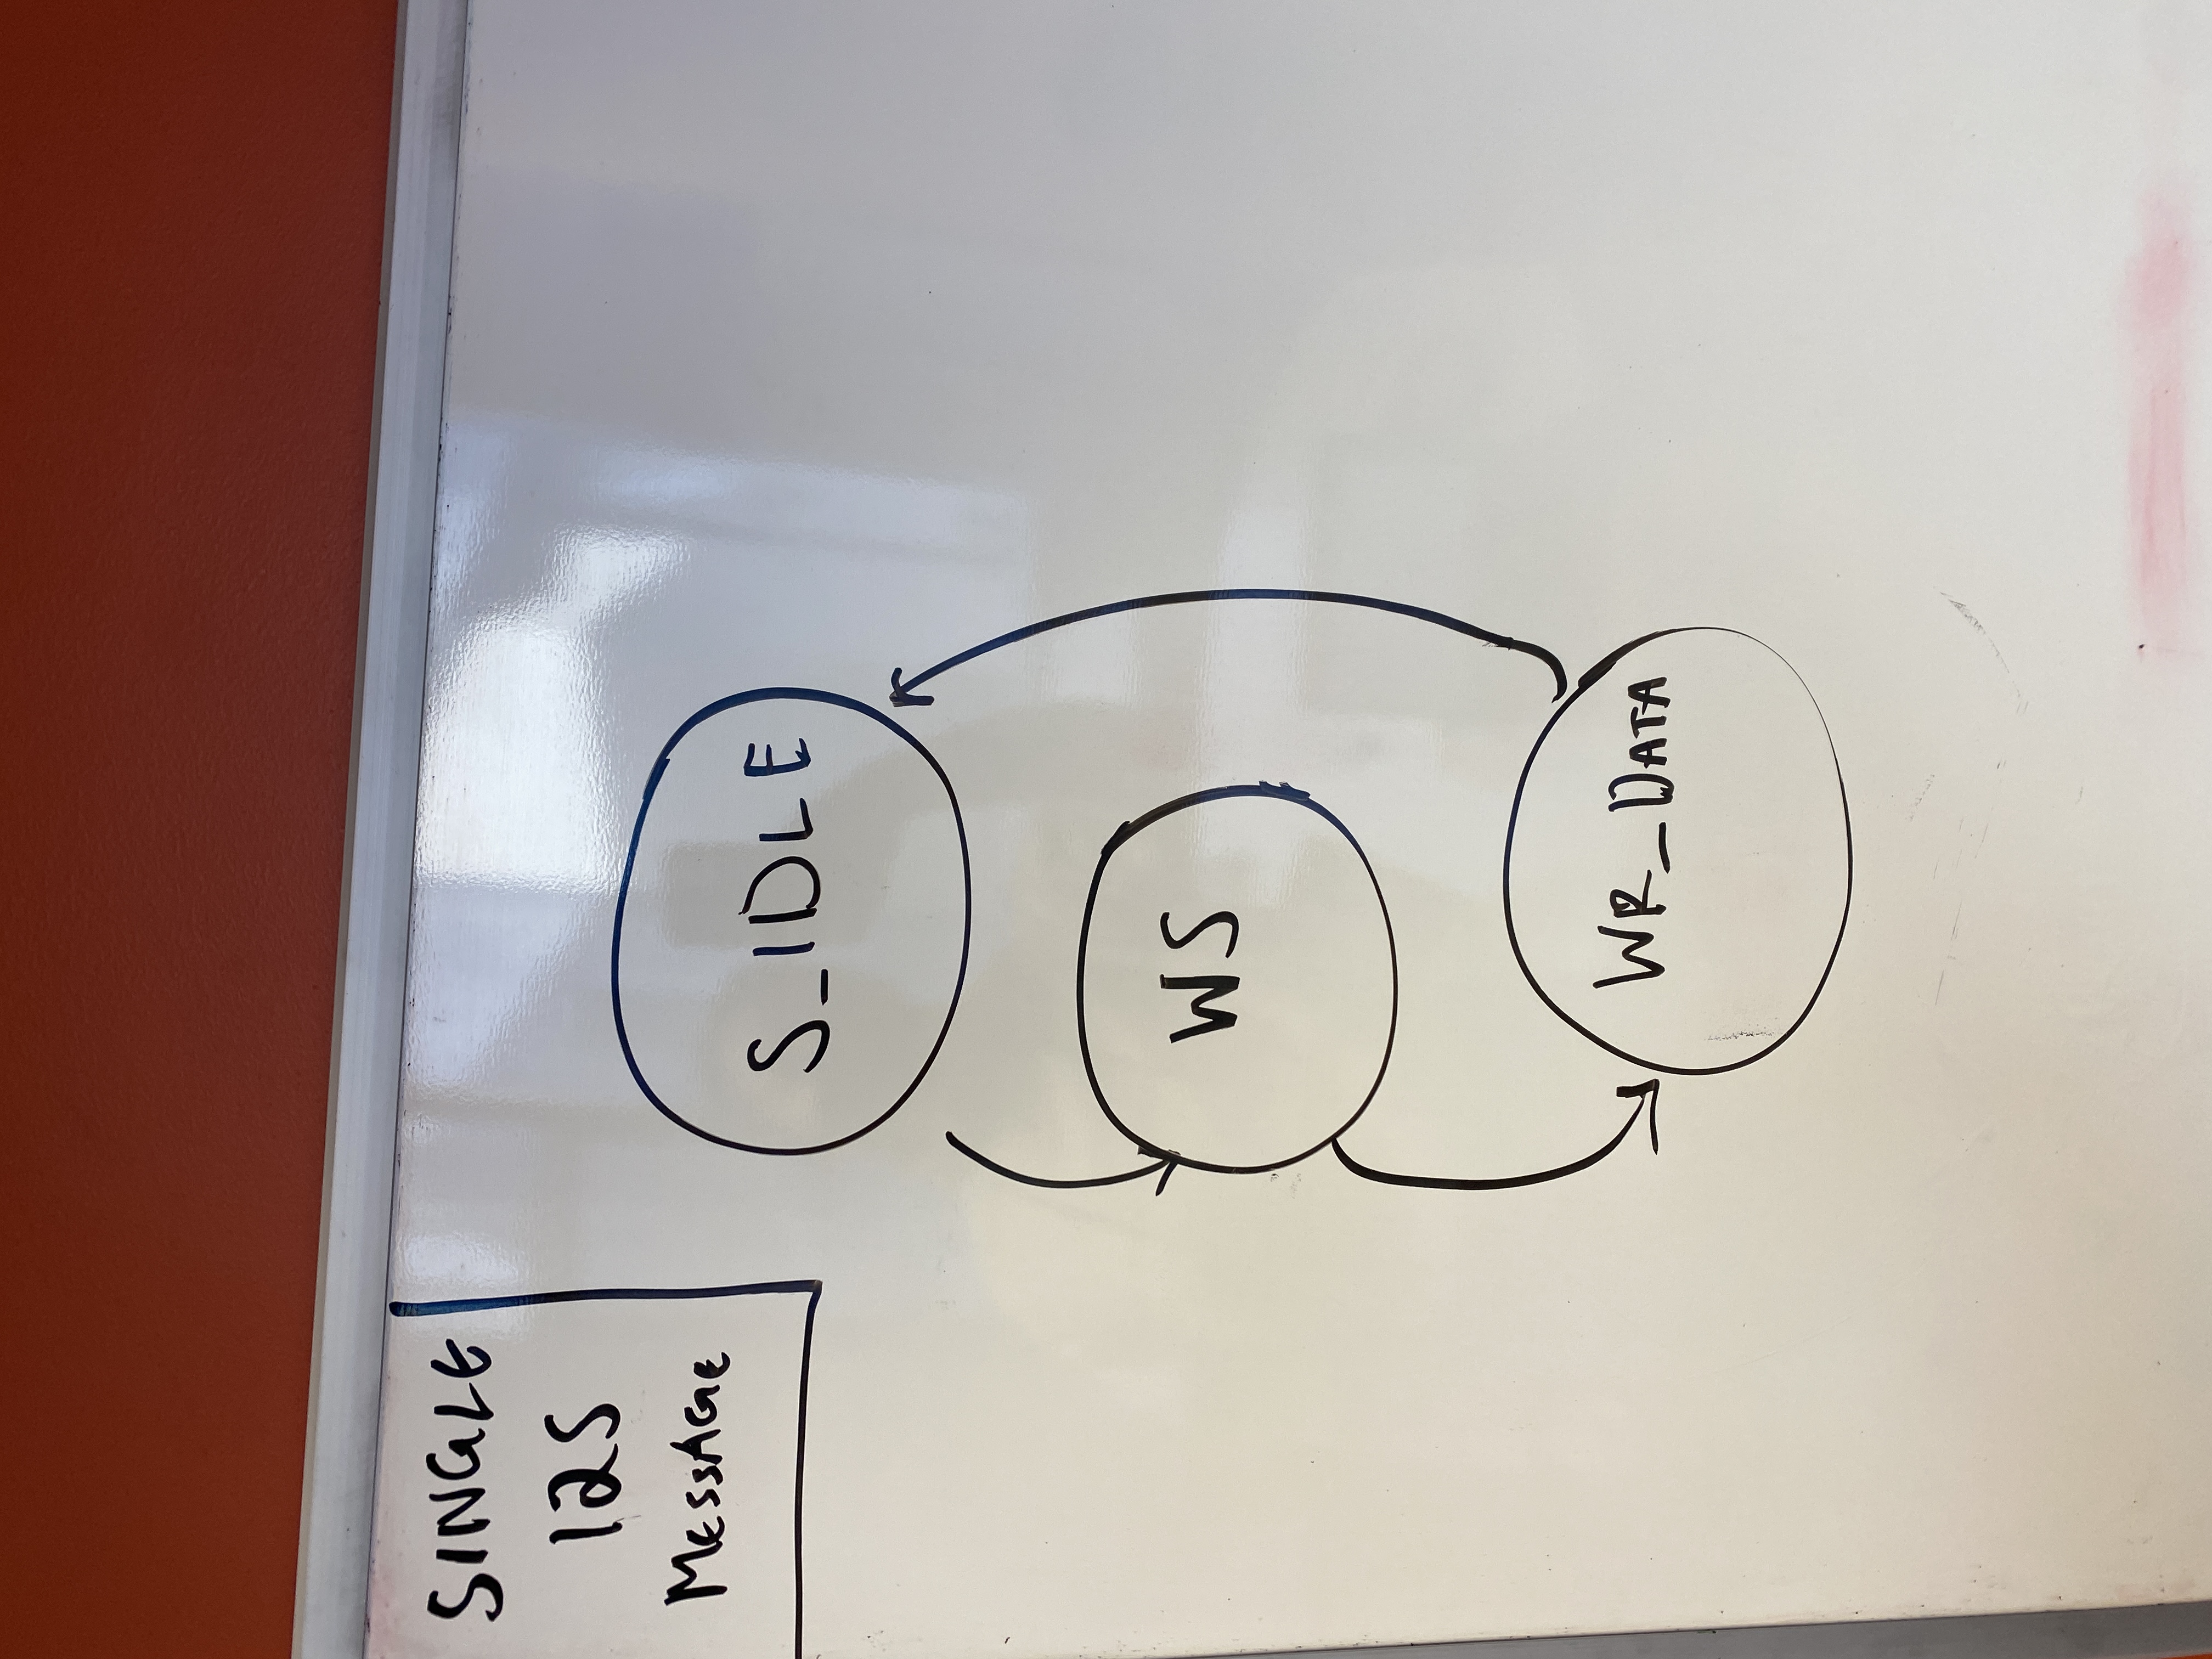 SINGLE
I2S
MESSAGE
S_IDLE
WS
WR_DATA